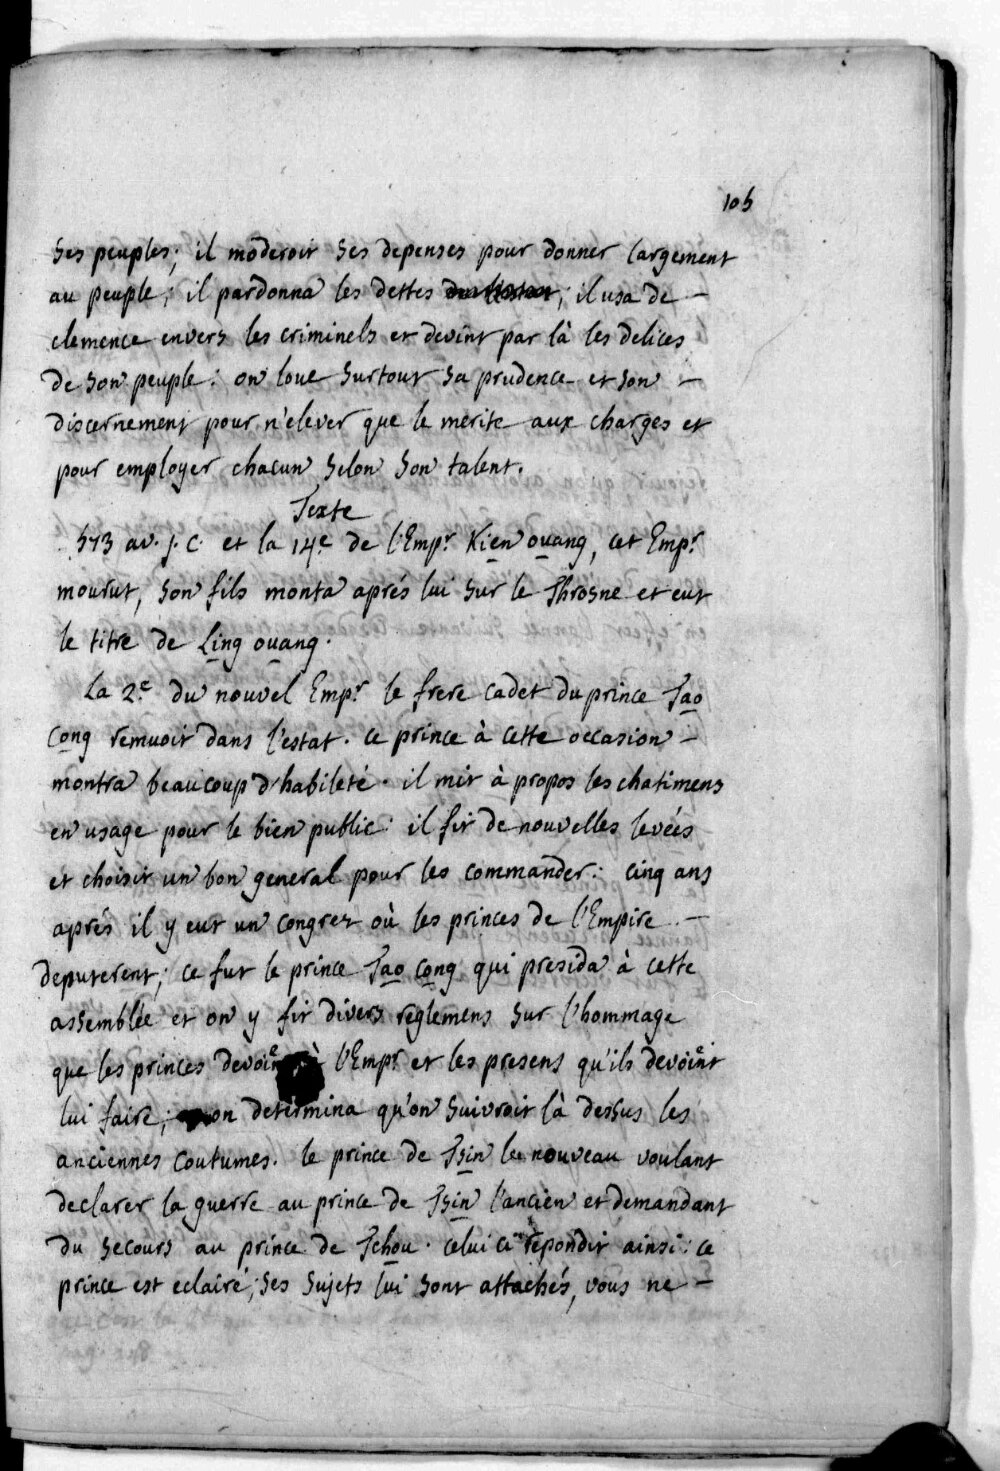 105
ses peuples; il moderoit ses depenses pour donner largement
au peuple; il pardonna les dettes ; il usa de –
clemence envers les criminels et devint par là les delices
de son peuple: on loue surtout sa prudence et son –
discernement pour n'elever que le merite aux charges et
pour employer chacun selon son talent.
Texte
573 av. j. c. et la 14e de l'Empr Kien ouang, cet Empr
mourut, son fils monta aprés lui sur le Throsne et eut
le titre de Ling ouang.
La 2e du nouvel Empr le frere cadet du prince Tao
Cong remuoit dans l'estat. ce prince à cette occasion –
montra beaucoup d'habileté. il mit à propos les chatimens
en usage pour le bien public: il fit de nouvelles levées
et choisit un bon general pour les commander: cinq ans
aprés il y eut un congrez où les princes de l'Empire –
deputerent; ce fut le prince Tao Cong qui presida à cette
assemblée et on y fit divers reglemens sur l'hommage
que les princes devoient à l'Empr et les presens qu'ils devoient
lui faire; on determina qu'on suivroit là dessus les
anciennes coutumes. le prince de Tsin le nouveau voulant
declarer la guerre au prince de Tsin l'ancien et demandant
du secours au prince de Tchou. celui ci repondit ainsi: ce
prince est eclairé, ses sujets lui sont attachés, vous ne –